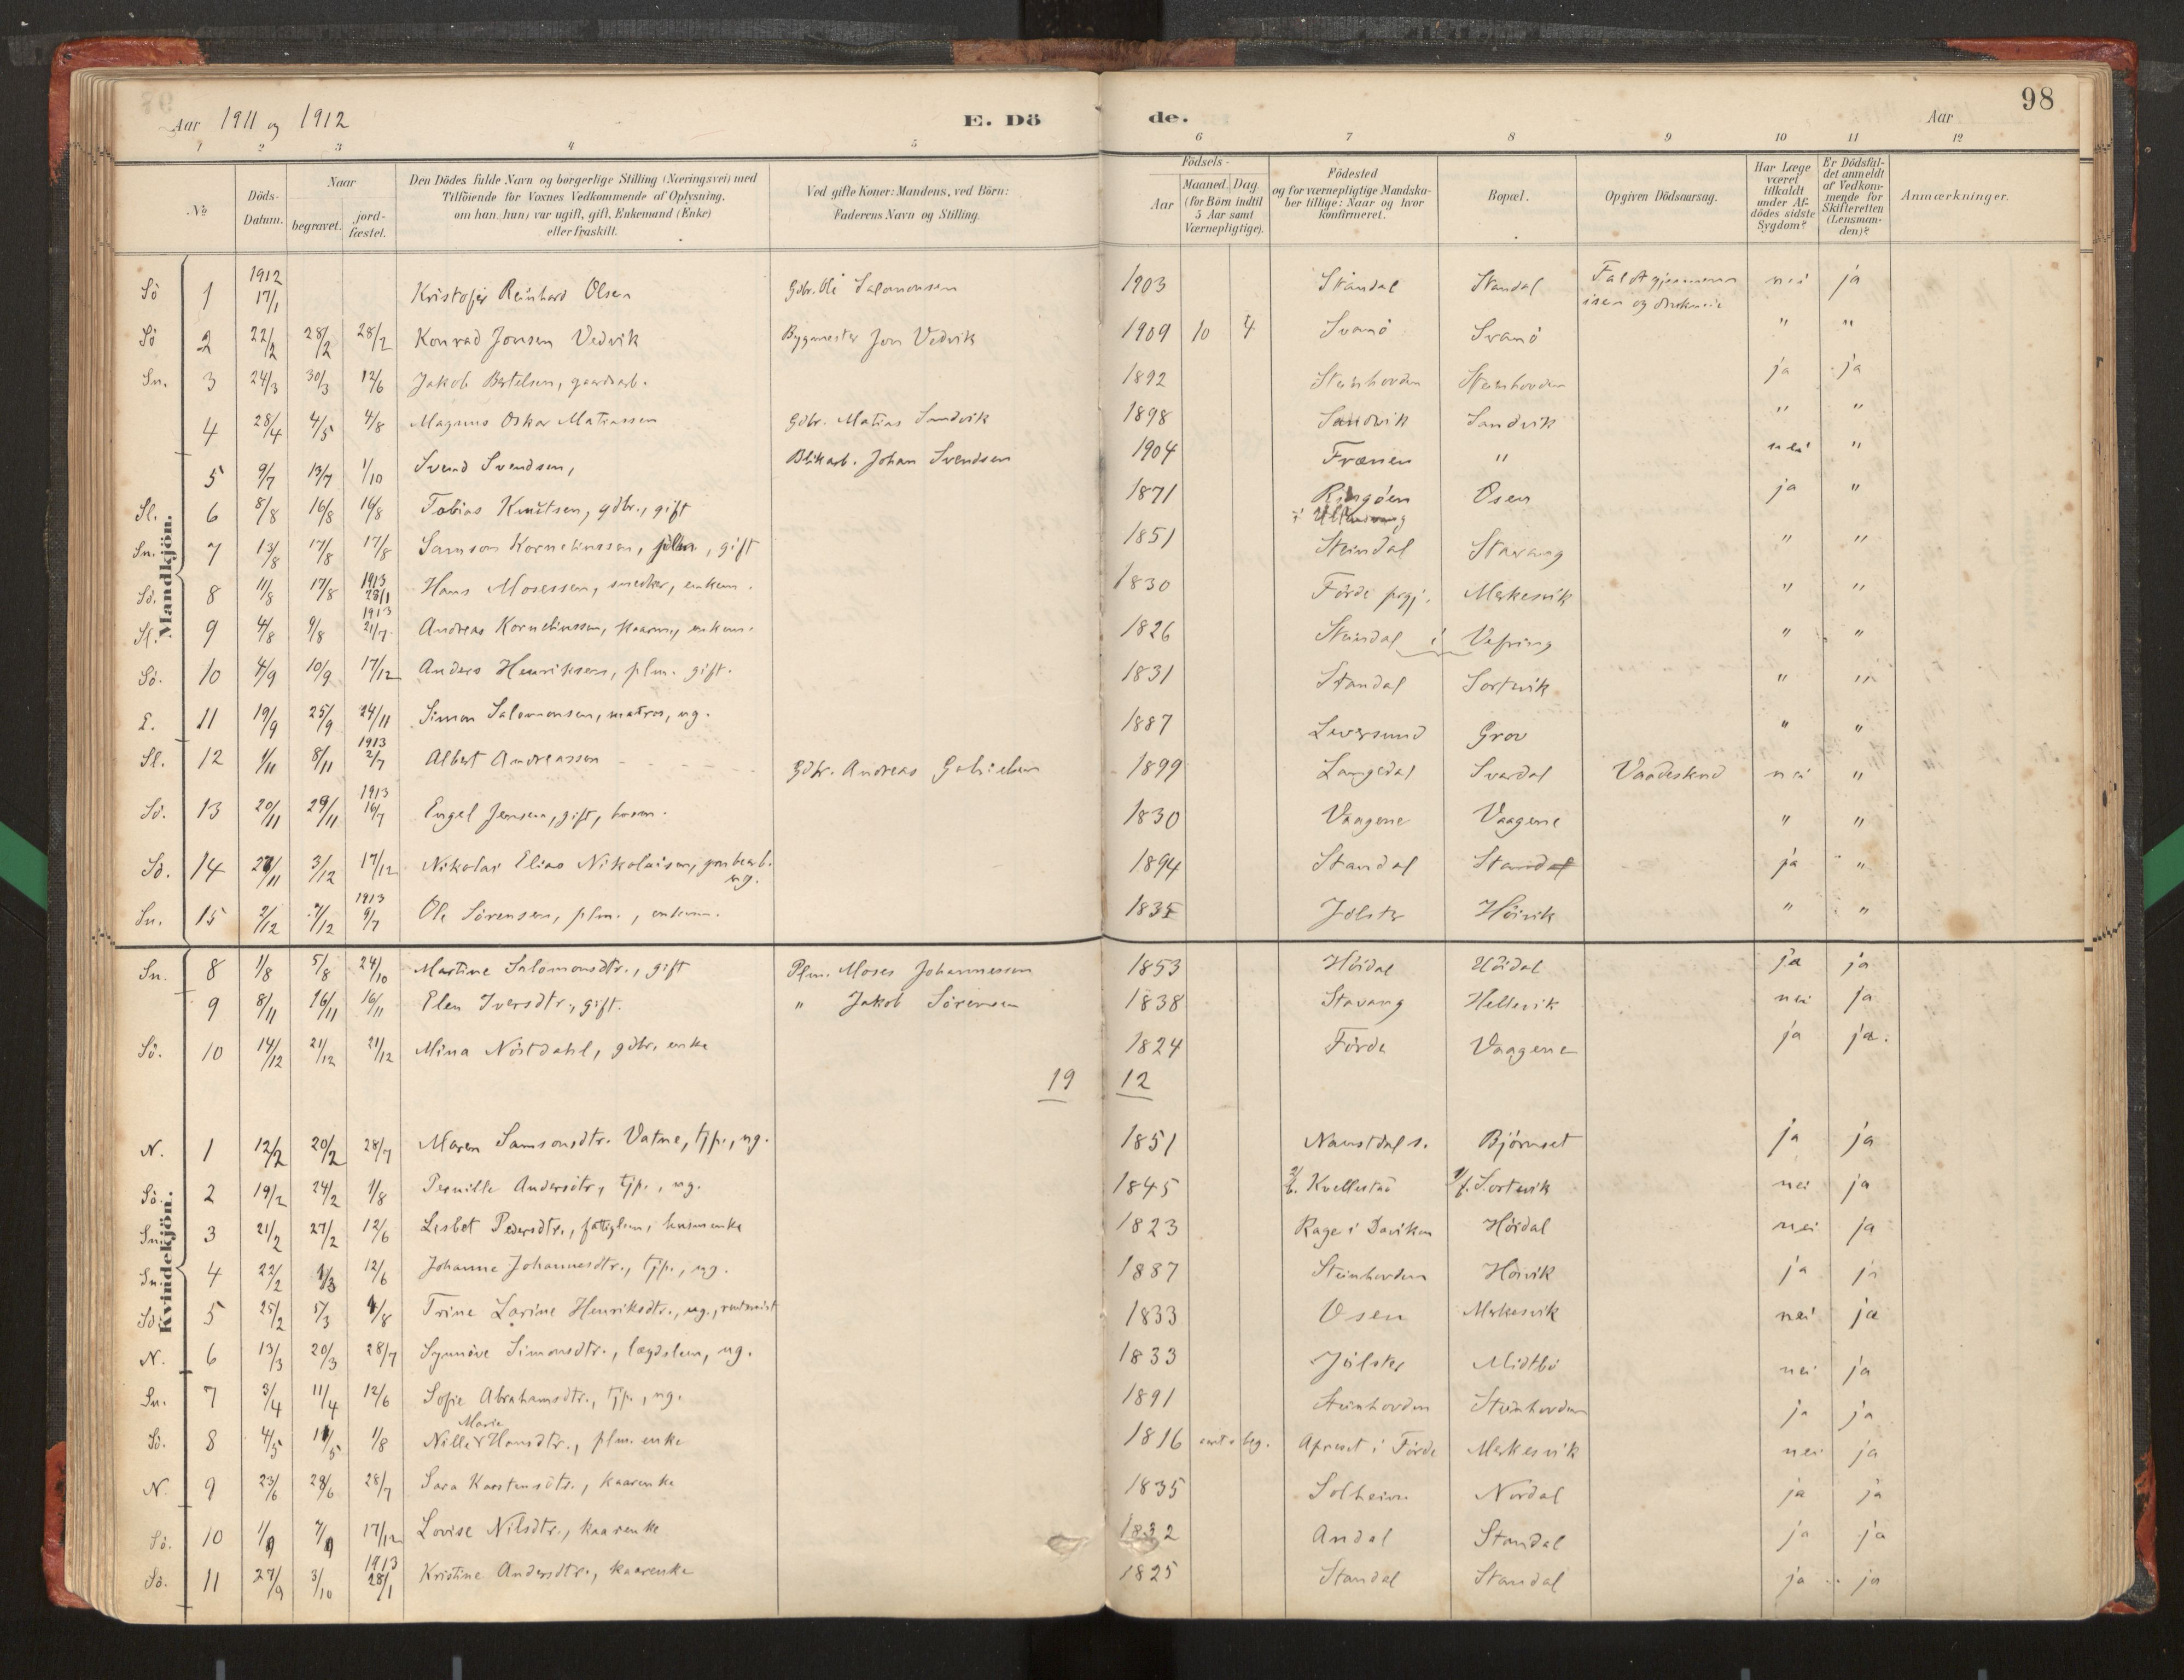 98
Aar 1911 og 1912 E. Dö de. Aar
1 2 3 4 5 6 7 8 9 10 11 12
No
Döds-Datum.
Naar begravet. jord-fæstet.
Den Dödes fulde Navn og borgerlige Stilling (Næringsvei) med Tilföiende for Voxnes Vedkommende af Oplysning, om han (hun) var ugift, gift, Enkemand (Enke) eller fraskilt.
Ved gifte Koner: Mandens, ved Börn: Faderens Navn og Stilling.
Födsels- Aar Maaned. Dag (for Börn indtil 5 Aar samt Værnepligtige).
Födested og for værnepligtige Mandskaber tillige: Naar og hvor konfirmeret.
Bopæl.
Opgiven Dödsaarsag.
Har Læge været tilkaldt under Afdödes sidste Sygdom?
Er Dödsfaldet anmeldt af Vedkommende for Skifteretten (Lensmanden)?
Anmærkninger.
Mandkjön.
Sö 1 1912 17/1 Kristofer Reinhard Olsen Gdbr. Ole Salomonsen 1903 Standal Standal Faldt gjennem isen og druknede nei ja
Sö 2 22/2 28/2 28/2 Konrad Jonsen Vedvik Bygmester Jon Vedvik 1909 10 4 Svanö Svanö " "
Sn. 3 24/3 30/3 12/6 Jakob Bertelsen, gaardsarb. 1892 Steinhovden Steinhovden ja ja
4 28/4 4/5 4/8 Magnus Oskar Matiassen Gdbr. Matias Sandvik 1898 Sandvik Sandvik " "
5 9/7 13/7 1/10 Svend Svendsen, Blikarb. Johan Svendsen 1904 Frænen " nei "
Sl. 6 8/8 16/8 16/8 Tobias Knutsen, gdbr., gift 1871 Ringöen i Ullensvang Osen ja "
Sn. 7 13/8 17/8 17/8 Samson Kornelinssen, gift 1851 Steindal Stavang " "
Sö. 8 11/8 17/8 1913 28/1 Hans Mosessen, snedker, enkem. 1830 Förde prgj. Merkesvik " "
Sl. 9 4/8 9/8 1913 21/7 Andreas Kornelinssen, kaarm., enkem. 1826 Steindal i Vefring " "
Sö. 10 4/9 10/9 17/12 Anders Henriksen, plm. gift. 1831 Standal Sortevik " "
E. 11 19/9 25/9 24/11 Simon Salomonsen, matros, ug. 1887 Leversund Grov " "
Sl. 12 1/11 8/11 1913 2/7 Albert Andreassen Gdbr. Andreas Gabrielsen 1899 Langedal Svardal Vaadeskud nei "
Sö. 13 20/11 29/11 1913 16/7 Engel Jensen, gift, husm. 1830 Vaagene Vaagene " "
Sö. 14 27/11 3/12 17/12 Nikolai Elias Nikolaisen, grubearb. ug. 1894 Standal Standal ja "
Sn. 15 2/12 7/12 1913 9/7 Ole Sörensen, plm., enkem. 1835 Jölster Höivik " "
Kvindekjön.
Sn. 8 1/8 5/8 24/10 Martine Salomonsdtr., gift Plm. Moses Johannessen 1853 Höidal Höidal ja ja
9 8/11 16/11 16/11 Elen Iversdtr., gift. " Jakob Sörensen 1838 Stavang Hellevik nei ja
Sö. 10 14/12 21/12 21/12 Mina Nöstdahl, gdbr. enke 1824 Förde Vaagene ja ja.
19 12
N. 1 12/2 20/2 28/7 Maren Samsonsdtr. Vatne, tjp., ug. 1851 Naustdal s. Björnset ja ja
Sö. 2 19/2 24/2 1/8 Pernille Andersdtr, tjp., ug. 1845 Kvellestad Sortevik nei ja
Sn. 3 21/2 27/2 12/6 Lisbet Pedersdtr., fattiglem, husmenke 1823 Rage i Daviken Höidal nei ja
Sn. 4 22/2 1/3 12/6 Johanne Johannesdtr., tjp., ug. 1887 Steinhovden Höivik ja ja
Sö. 5 25/2 5/3 1/8 Trine Larine Henriksdtr., ug., 1833 Osen Merkesvik nei ja
N. 6 13/3 20/3 28/7 Synnöve Simonsdtr., lægdslem, ug. 1833 Jölster Midtbö nei ja
Sn. 7 3/4 11/4 12/6 Sofie Abrahamsdtr., tjp., ug. 1891 Steinhovden Steinhovden ja ja
Sö. 8 4/5 11/5 1/8 Nille Marie Hansdtr., plm. enke 1816 Apneset i Förde Merkesvik nei ja
N. 9 23/6 29/6 28/7 Sara Karstensdtr., kaarenke 1835 Solheim Nordal ja ja
Sö. 10 1/9 7/9 17/12 Lovise Nilsdtr., kaarenke 1832 Andal Standal ja ja
Sö. 11 27/9 3/10 1913 28/1 Kristine Andersdtr., kaarenke 1825 Standal Standal ja ja